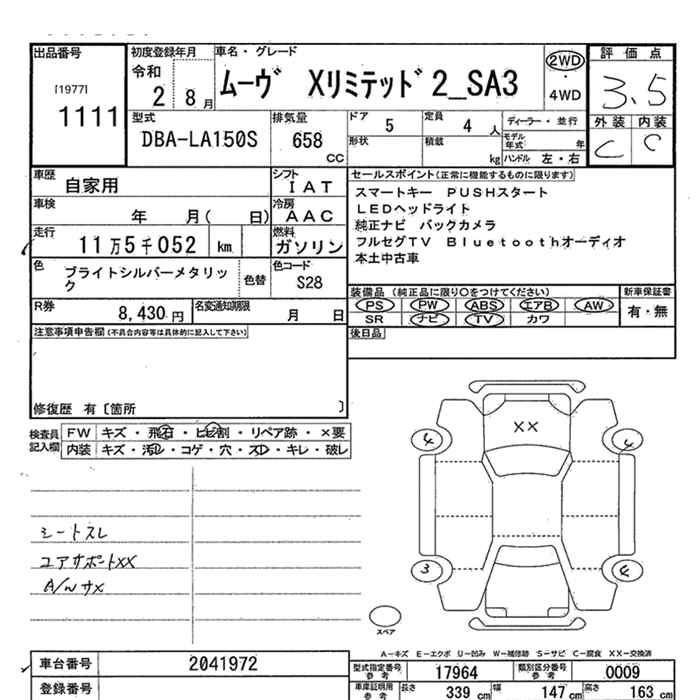 出品番号
[1977]
1111
初度登録年月
令和
2 8月
車名・グレード
ムーヴ Xリミテッド2_SA3
2WD
・
4WD
評価点
3.5
外装 内装
C C
型式
DBA-LA150S
排気量
658
CC
ドア 5
定員 4 人
形状
積載 kg
ディーラー・並行
モデル年式 年
ハンドル 左・右
車歴 自家用
シフト IAT
車検 年 月( 日)
冷房 AAC
走行 11万5千052 km
燃料 ガソリン
色 ブライトシルバーメタリック
色替
色コード S28
R券 8,430円
名変通知期限 月 日
セールスポイント(正常に機能するものに限ります)
スマートキー PUSHスタート
LEDヘッドライト
純正ナビ バックカメラ
フルセグTV Bluetoothオーディオ
本土中古車
装備品(純正品に限り○をつけてください)
PS PW ABS エアB AW
SR ナビ TV カワ
新車保証書
有・無
後日品
注意事項申告欄(不具合内容等は具体的に記入して下さい)
修復歴 有〔箇所 〕
検査員記入欄
FW キズ・飛石・ヒビ割・リペア跡・×要
内装 キズ・汚レ・コゲ・穴・スレ・キレ・破レ
シートスレ
コアサポートXX
A/WサX
XX
4
4
3
4
スペア
A-キズ E-エクボ U-凹み W-補修跡 S-サビ C-腐食 XX-交換済
車台番号 2041972
登録番号
型式指定番号参考 17964
類別区分番号参考 0009
車庫証明用参考
長さ 339 cm
幅 147 cm
高さ 163 cm